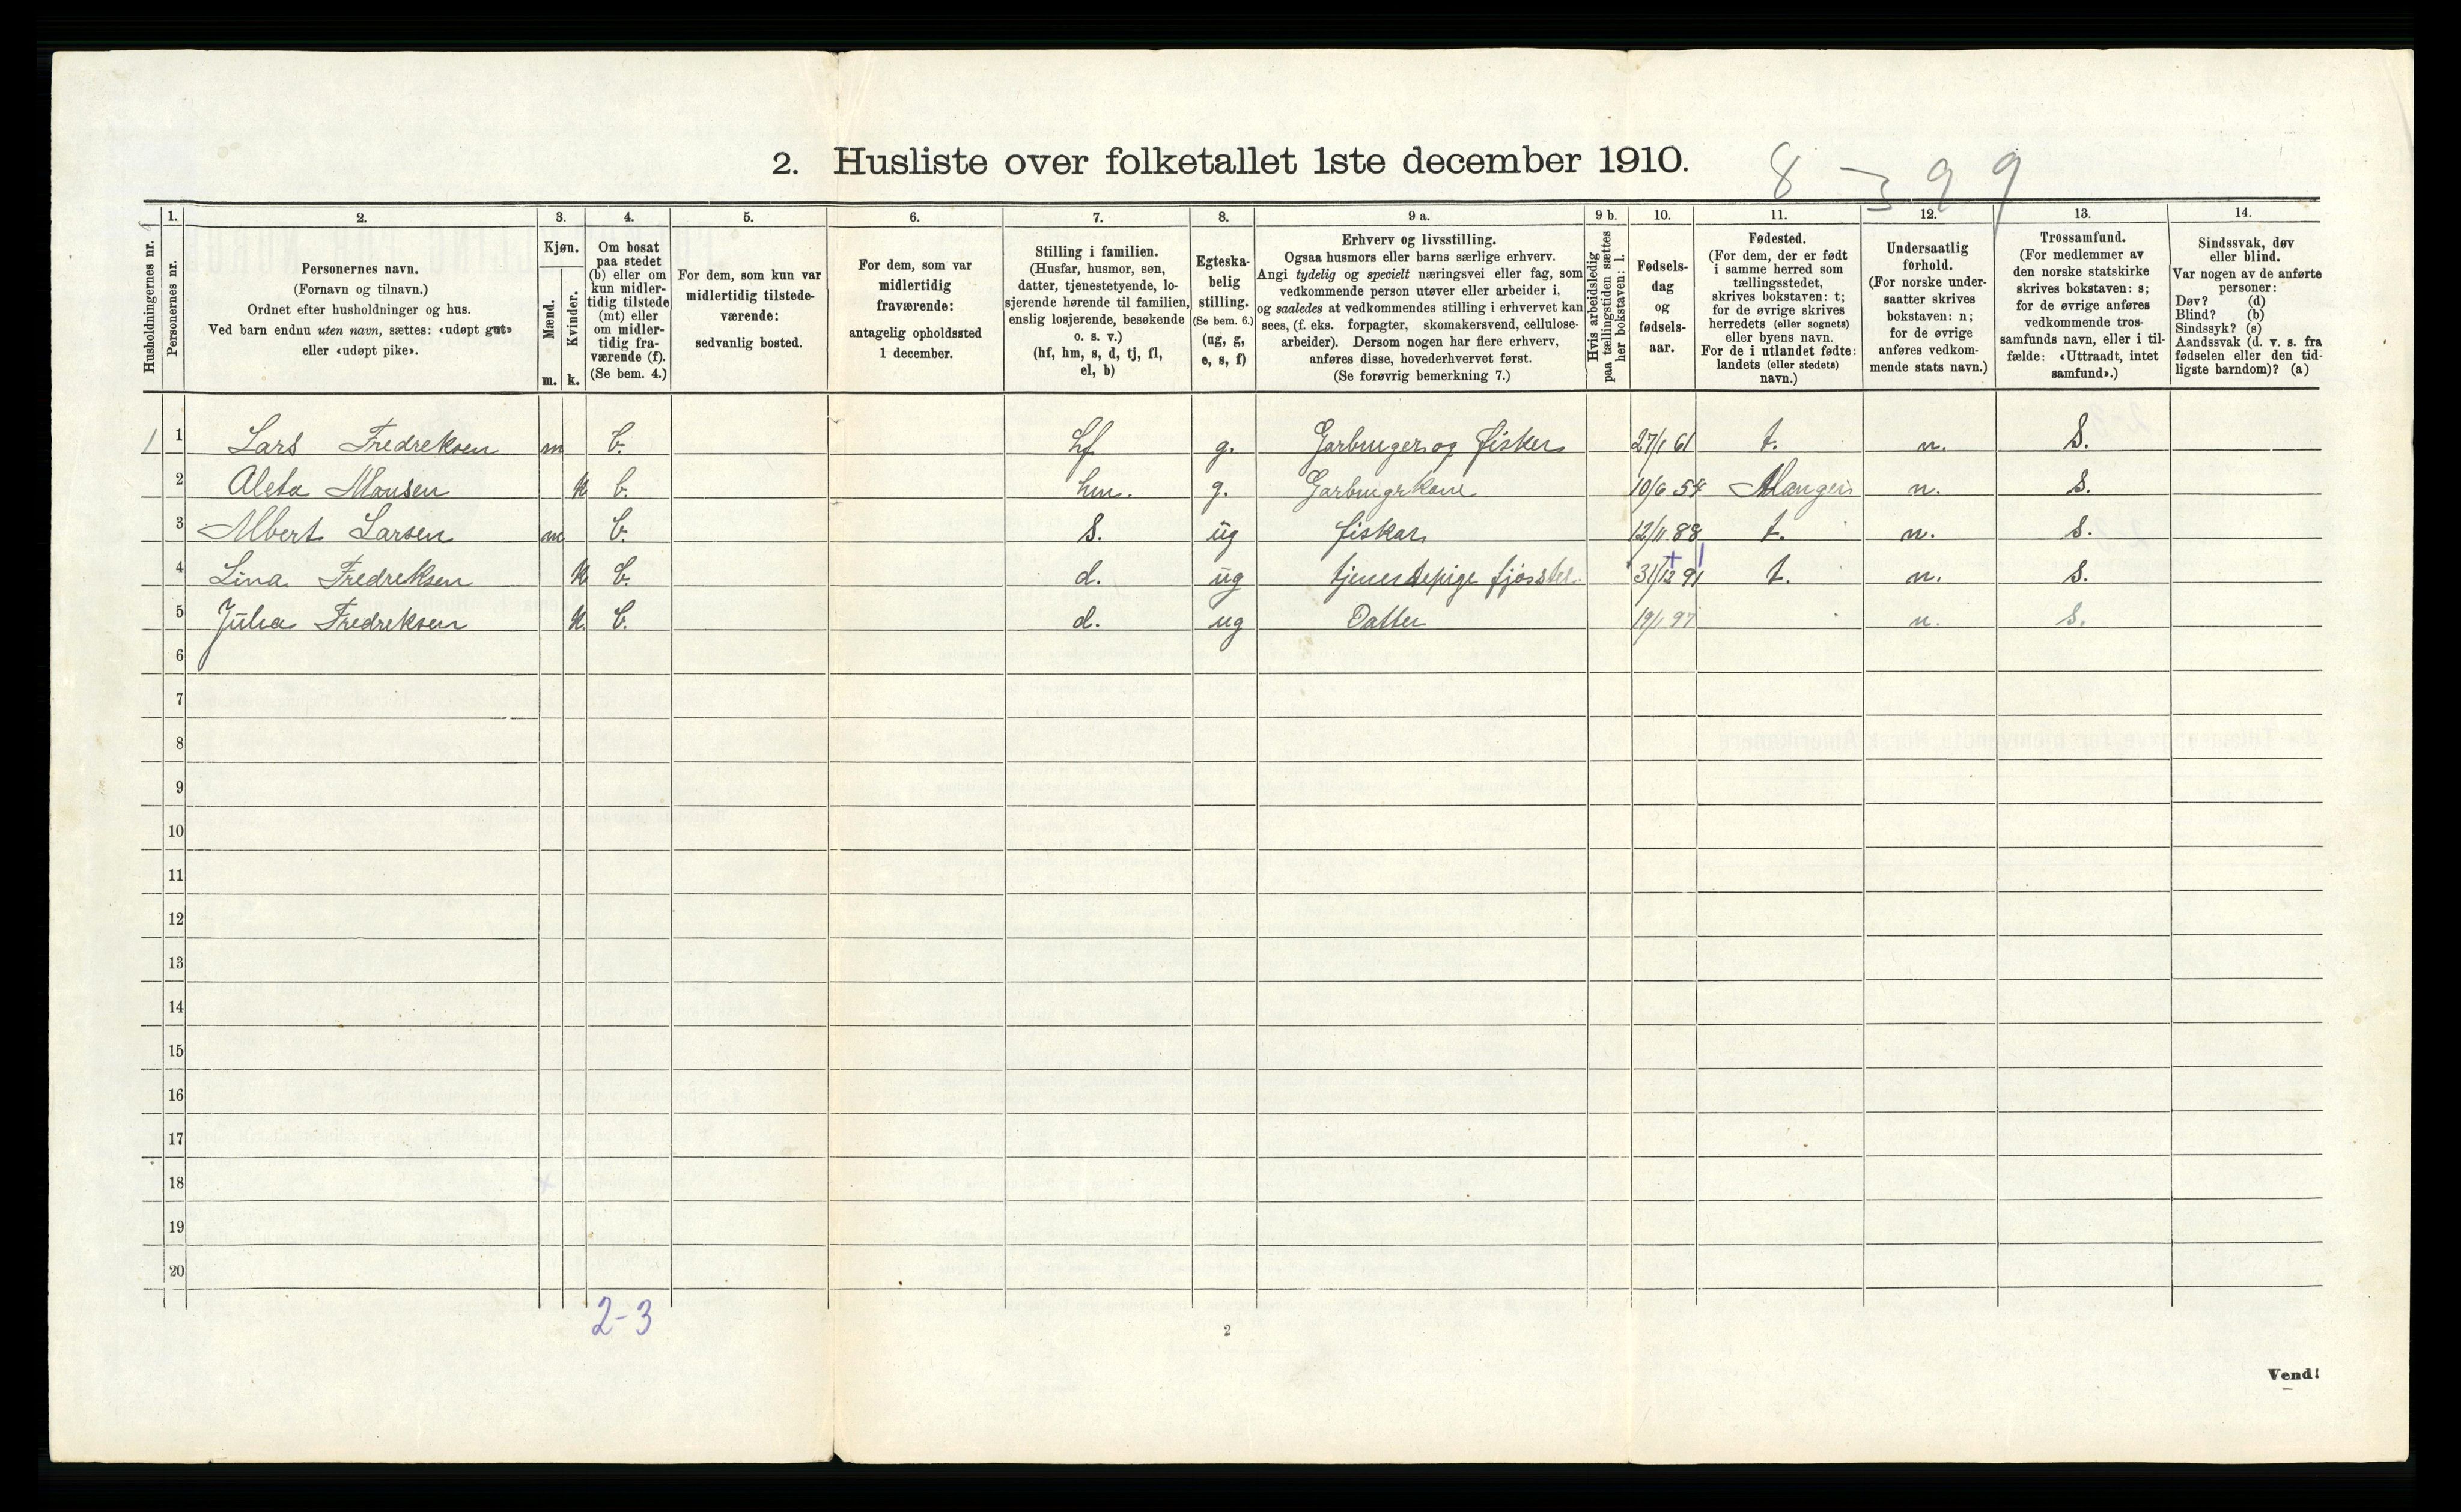 2. Husliste over folketallet 1ste december 1910.
8 – 3 9 9
Husholdningernes nr.
1.
Personernes nr.
2.
Personernes navn.
(Fornavn og tilnavn.)
Ordnet efter husholdninger og hus.
Ved barn endnu uten navn, sættes: «udøpt gut»
eller «udøpt pike».
3.
Kjøn.
Mænd.
Kvinder.
m. k.
4.
Om bosat
paa stedet
(b) eller om
kun midler-
tidig tilstede
(mt) eller
om midler-
tidig fra-
værende (f).
(Se bem. 4.)
5.
For dem, som kun var
midlertidig tilstede-
værende:
sedvanlig bosted.
6.
For dem, som var
midlertidig
fraværende:
antagelig opholdssted
1 december.
7.
Stilling i familien.
(Husfar, husmor, søn,
datter, tjenestetyende, lo-
sjerende hørende til familien,
enslig losjerende, besøkende
o. s. v.)
(hf, hm, s, d, tj, fl,
el, b)
8.
Egteska-
belig
stilling.
(Se bem. 6.)
(ug, g,
e, s, f)
9 a.
Erhverv og livsstilling.
Ogsaa husmors eller barns særlige erhverv.
Angi tydelig og specielt næringsvei eller fag, som
vedkommende person utøver eller arbeider i,
og saaledes at vedkommendes stilling i erhvervet kan
sees, (f. eks. forpagter, skomakersvend, cellulose-
arbeider). Dersom nogen har flere erhverv,
anføres disse, hovederhvervet først.
(Se forøvrig bemerkning 7.)
9 b.
Hvis arbeidsledig
paa tællingstiden sættes
her bokstaven: l.
10.
Fødsels-
dag
og
fødsels-
aar.
11.
Fødested.
(For dem, der er født
i samme herred som
tællingsstedet,
skrives bokstaven: t;
for de øvrige skrives
herredets (eller sognets)
eller byens navn.
For de i utlandet fødte:
landets (eller stedets)
navn.)
12.
Undersaatlig
forhold.
(For norske under-
saatter skrives
bokstaven: n;
for de øvrige
anføres vedkom-
mende stats navn.)
13.
Trossamfund.
(For medlemmer av
den norske statskirke
skrives bokstaven: s;
for de øvrige anføres
vedkommende tros-
samfunds navn, eller i til-
fælde: «Uttraadt, intet
samfund».)
14.
Sindssvak, døv
eller blind.
Var nogen av de anførte
personer:
Døv? (d)
Blind? (b)
Sindssyk? (s)
Aandssvak (d. v. s. fra
fødselen eller den tid-
ligste barndom)? (a)
1 1 Lars Fredreksen m b. hf g. Garbruger og fisker 27/1 61 t. n. S.
2 Aleta Monsen k b. hm. g. Garbrugrkone 10/6 54 Manger n. s.
3 Albert Larsen m b. s. ug fiskar 12/11 88 t. n. s.
4 Lina Fredreksen k b. d. ug tjenestepige fjøsstel. 31/12 91 t. n. s.
5 Julia Fredreksen k. b. d. ug Datter 19/1 97 n. s.
6
7
8
9
10
11
12
13
14
15
16
17
18
19
20
2-3
2
Vend!